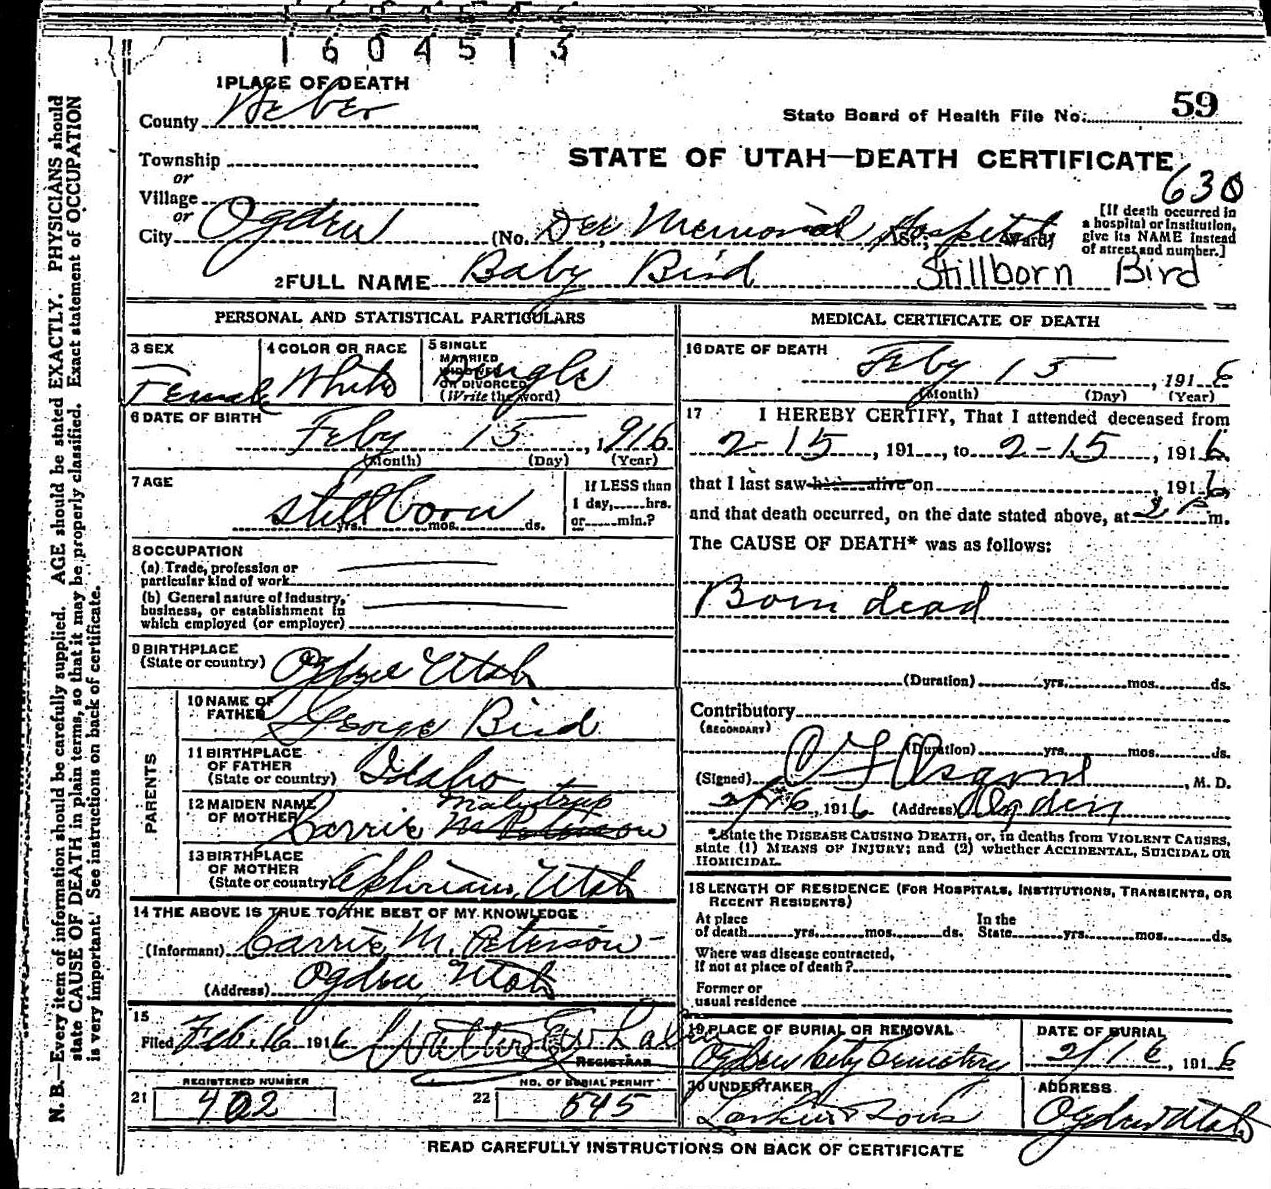 1604513
1 PLACE OF DEATH
County Weber
State Board of Health File No. 59
Township
or
STATE OF UTAH—DEATH CERTIFICATE
630
Village
or
City Ogden (No. Dee Memorial Hospital St.; Ward)
[If death occurred in a hospital or institution, give its NAME instead of street and number.]
2 FULL NAME Baby Bird Stillborn Bird
PERSONAL AND STATISTICAL PARTICULARS
3 SEX Female
4 COLOR OR RACE White
5 SINGLE MARRIED WIDOWED OR DIVORCED (Write the word) Single
6 DATE OF BIRTH
Feby 15, 1916
(Month) (Day) (Year)
7 AGE
stillborn
yrs. mos. ds.
If LESS than 1 day, hrs. or min.?
8 OCCUPATION
(a) Trade, profession or particular kind of work
(b) General nature of industry, business, or establishment in which employed (or employer)
9 BIRTHPLACE
(State or country) Ogden Utah
PARENTS
10 NAME OF FATHER George Bird
11 BIRTHPLACE OF FATHER (State or country) Idaho
12 MAIDEN NAME OF MOTHER Carrie M Peterson
13 BIRTHPLACE OF MOTHER (State or country) Ephriam, Utah
14 THE ABOVE IS TRUE TO THE BEST OF MY KNOWLEDGE
(Informant) Carrie M. Peterson
(Address) Ogden Utah
15
Filed Feb. 16 1916
REGISTRAR
21 REGISTERED NUMBER 402
22 NO. OF BURIAL PERMIT 545
MEDICAL CERTIFICATE OF DEATH
16 DATE OF DEATH
Feby 15, 1916
(Month) (Day) (Year)
17 I HEREBY CERTIFY, That I attended deceased from
2-15, 191, to 2-15, 1916,
that I last saw h alive on , 1916,
and that death occurred, on the date stated above, at 2 P m.
The CAUSE OF DEATH* was as follows:
Born dead
(Duration) yrs. mos. ds.
Contributory
(SECONDARY)
(Duration) yrs. mos. ds.
(Signed) , M. D.
2/16, 1916 (Address) Ogden
*State the DISEASE CAUSING DEATH, or, in deaths from VIOLENT CAUSES,
state (1) MEANS OF INJURY; and (2) whether ACCIDENTAL, SUICIDAL OR
HOMICIDAL.
18 LENGTH OF RESIDENCE (FOR HOSPITALS, INSTITUTIONS, TRANSIENTS, OR
RECENT RESIDENTS)
At place of death yrs. mos. ds. In the State yrs. mos. ds.
Where was disease contracted,
if not at place of death?
Former or
usual residence
19 PLACE OF BURIAL OR REMOVAL
Ogden City Cemetery
DATE OF BURIAL
2/16, 1916
20 UNDERTAKER
Larkin & Sons
ADDRESS
Ogden Utah
READ CAREFULLY INSTRUCTIONS ON BACK OF CERTIFICATE
N. B.—Every item of information should be carefully supplied. AGE should be stated EXACTLY. PHYSICIANS should
state CAUSE OF DEATH in plain terms, so that it may be properly classified. Exact statement of OCCUPATION
is very important. See instructions on back of certificate.